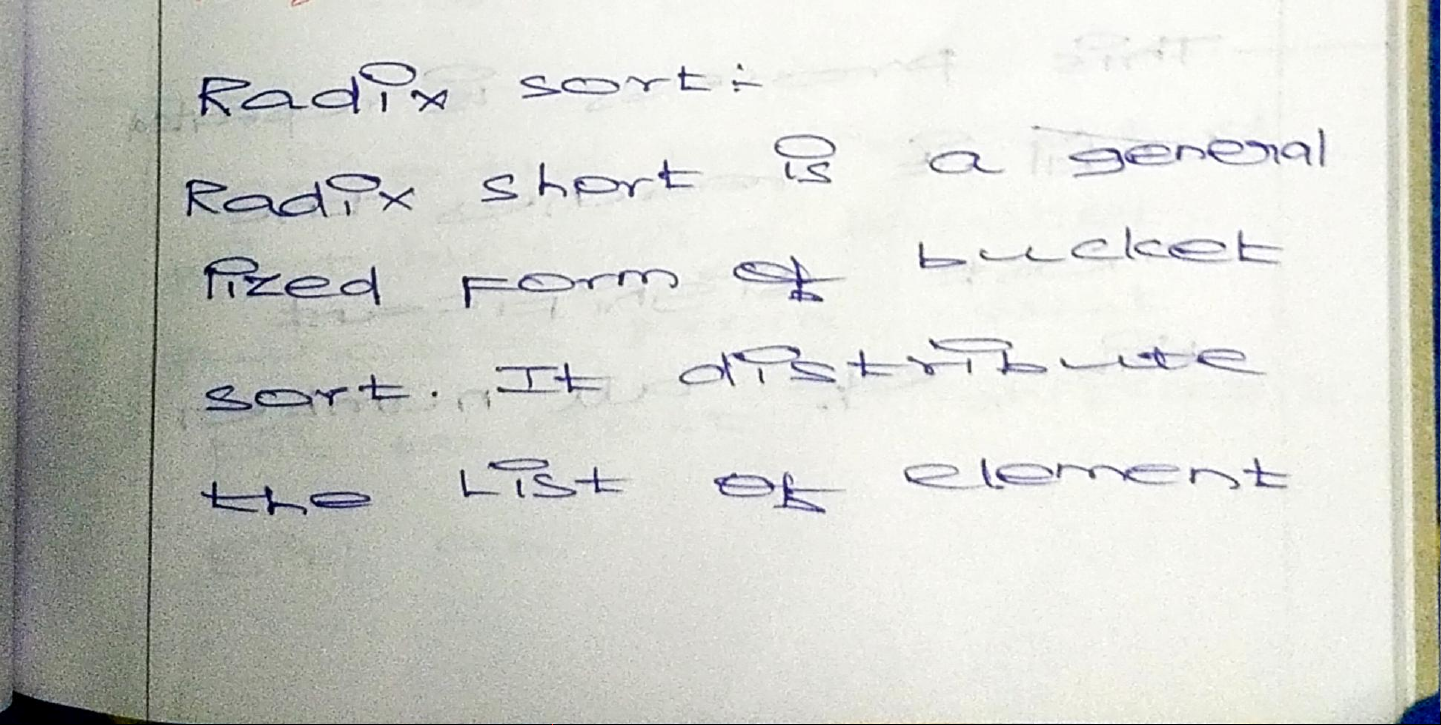 Radix sort:-
Radix short is a general
ized form of bucket
sort. It distribute
the List of element